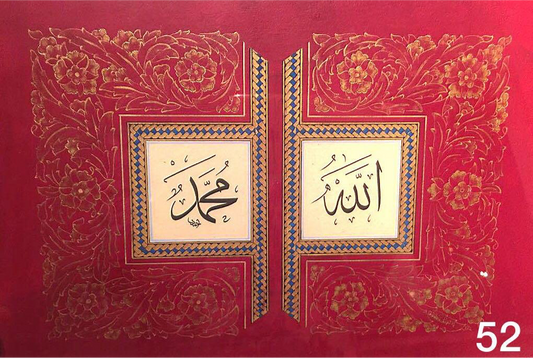 الله
محمد
52